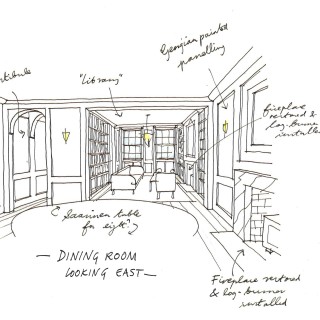 Georgian painted
panelling
"Library"
fireplace
restored &
log-burner
installed
"Saarinen table
for eight"
— DINING ROOM
LOOKING EAST —
Fireplace restored
& log-burner
installed